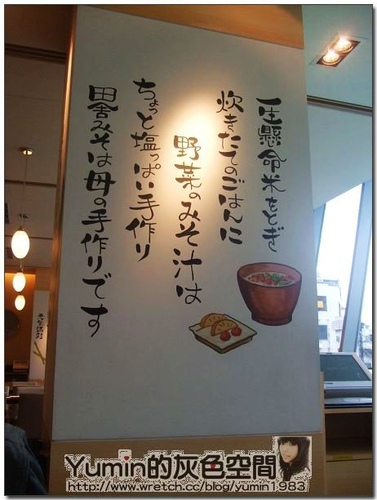 一生懸命米をとぎ
炊きたてのごはんに
野菜のみそ汁は
ちょっと塩っぱい手作り
田舎みそは母の手作りです
Yumin的灰色空間
http://www.wretch.cc/blog/yumin1983